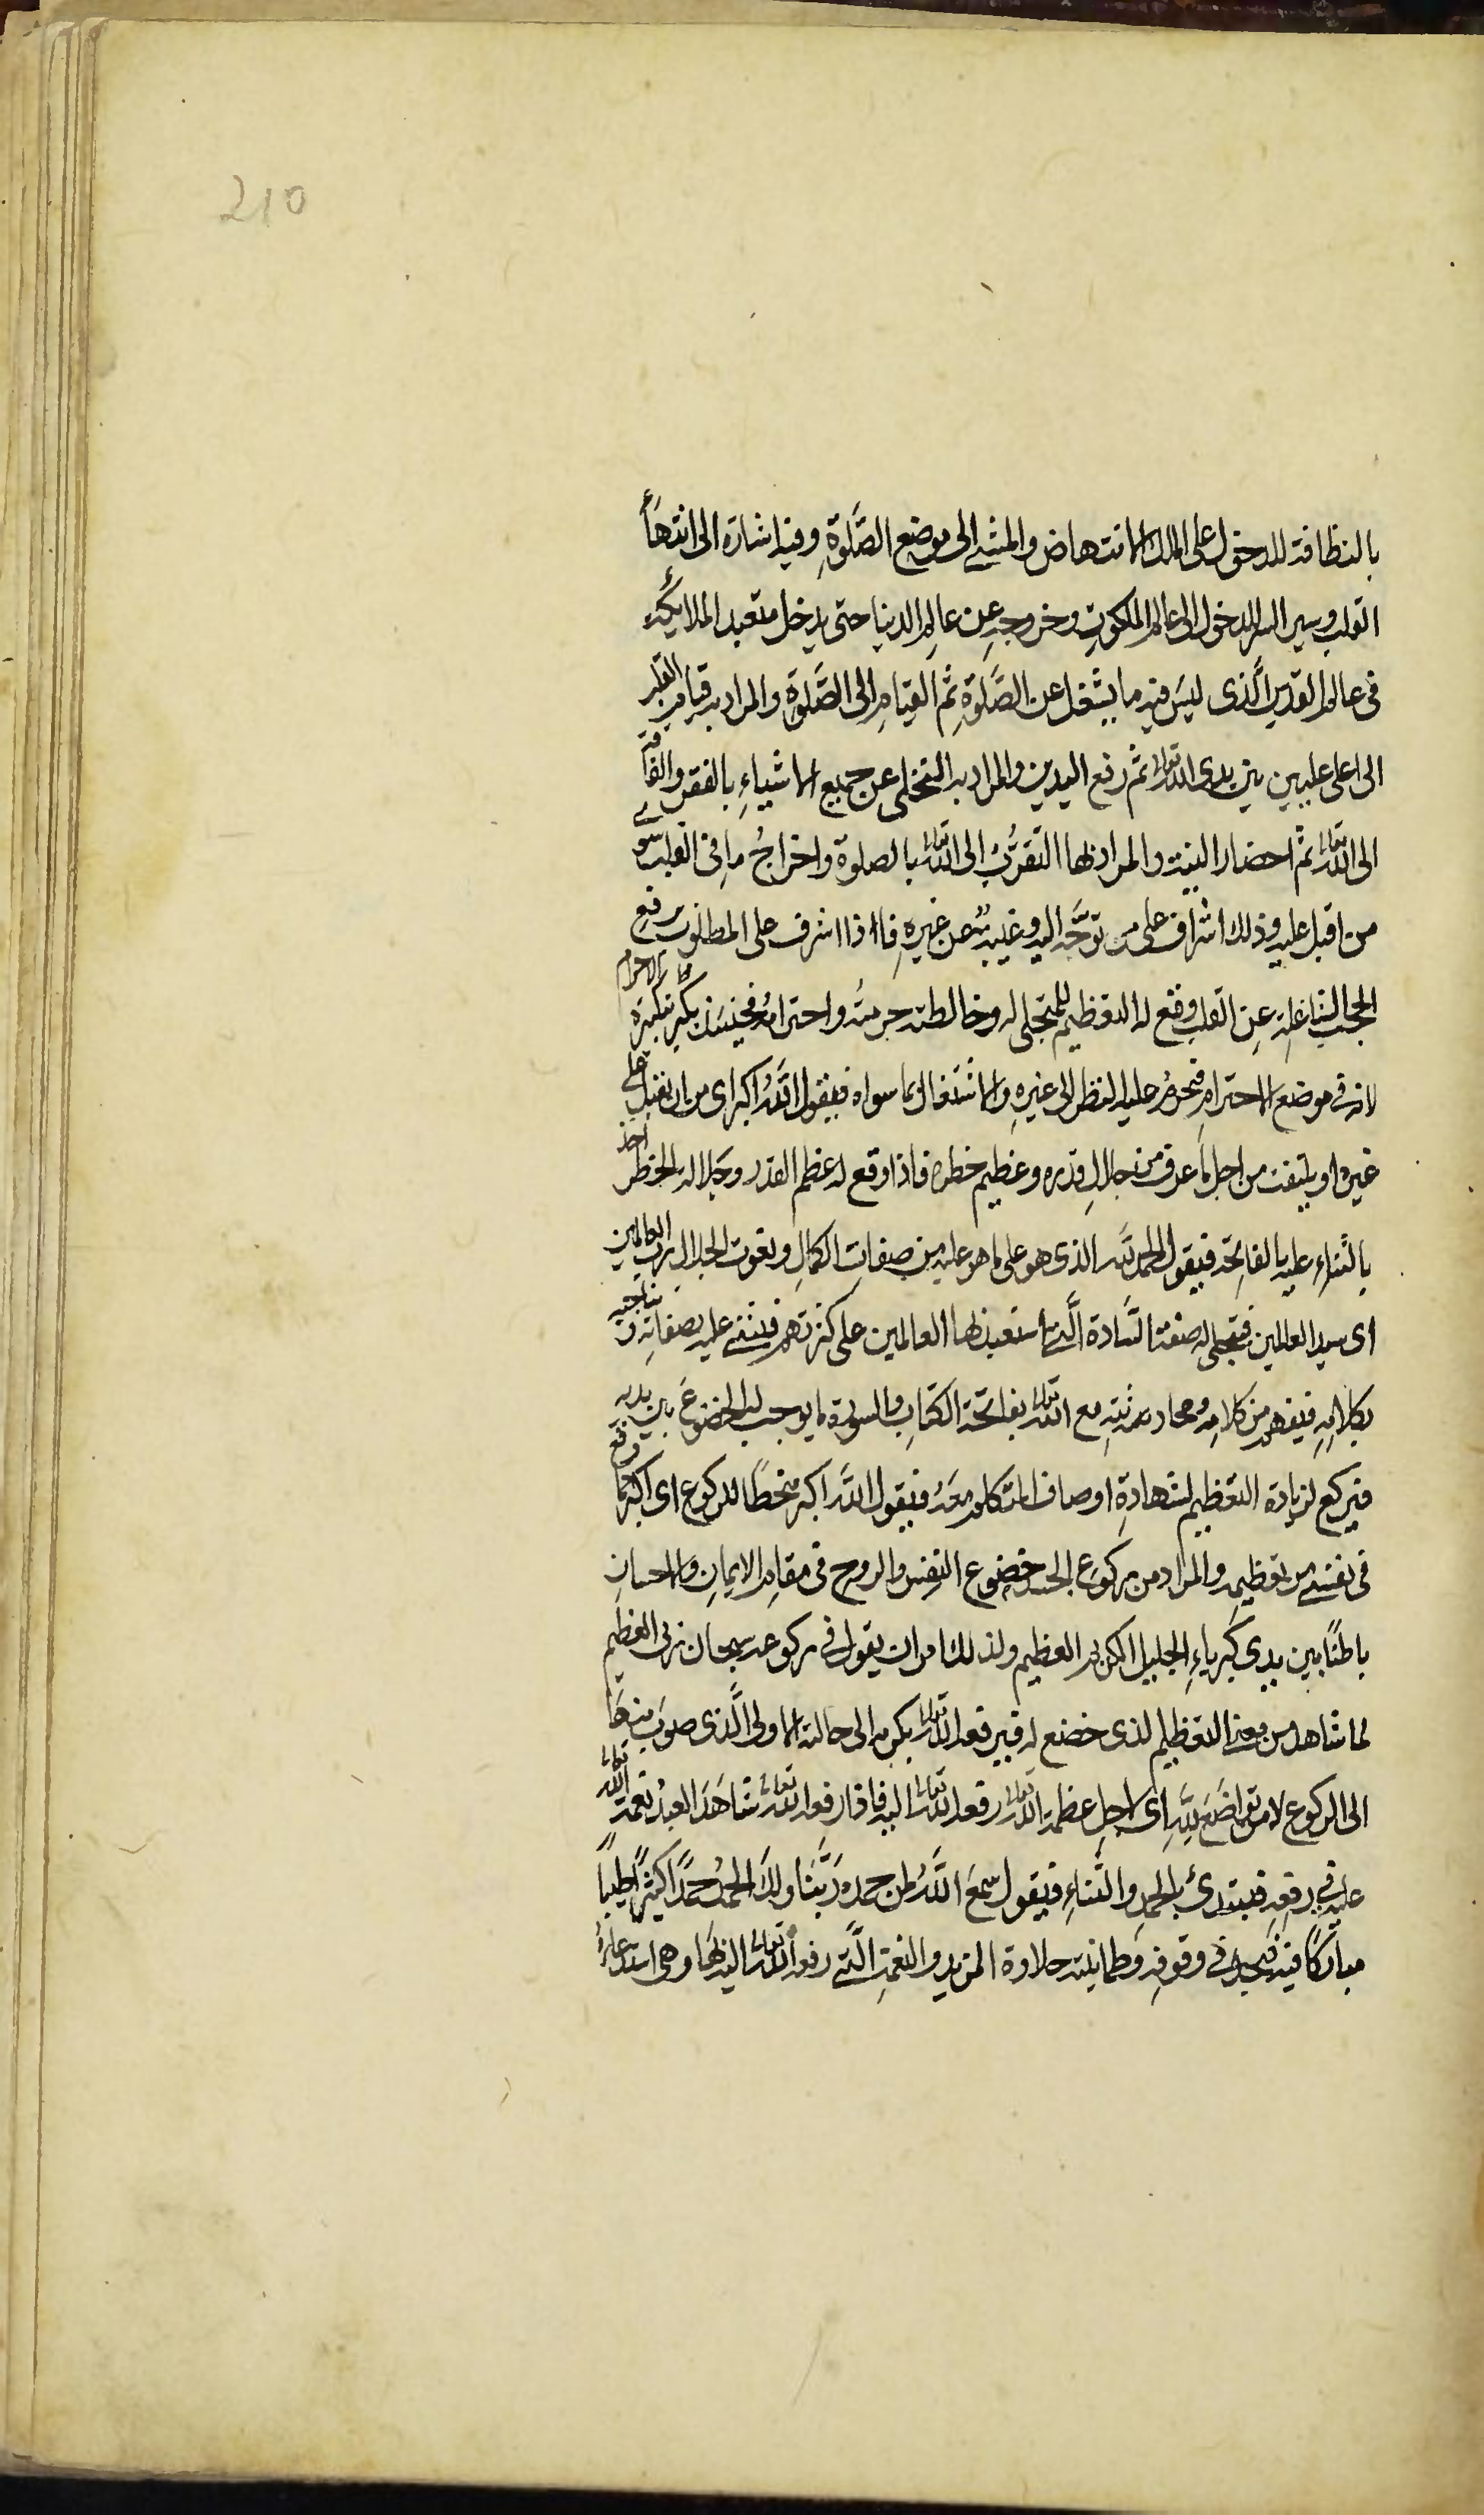 210
بالنظافة للدخول على الملك الانتهاض والمشي الى موضع الصَّلوةِ وفيه اشارة الى انتهاأ
القلب وسير السر للدخول الى عالم الملكوتِ وخروجه عن عالمِ الدنيا حتى يدخل متعبد الملائكة
فى عالم القدس الَّذى ليسَ فيه ما يشغل عن الصَّلوةِ ثم القيامِ الى الصَّلوة والمراد به قيام القلب
الى اعلى عليين بين يدى الله تعالى ثم رفع اليدين والمراد به التخلى عن جميع الاشياءِ بالفقر والفاقة
الى الله تعالى ثم احضار النية والمراد بها التقرُّبُ الى الله تعالى بالصلوة واخراجُ ما فى القلب سوى
من اقبل عليه وذلك اشراف على من توجَّه اليه وغيبةٌ عن غيرهِ فاذا اشرف على المطلوب ورفع
الحجب الشاغلة عن القلب وقع له التعظيم للمتجلى له وخالطته حرمته واحترامُه فحينئذ يكبر تكبيرة الاحرام
لانه فى موضع الاحترامِ فتحرمُ عليه النظر الى غيرهِ والاشتغال بما سواه فيقول اللَّهُ اكبر اى من ان يقبل على
غيره او يلتفت من اجل ما عرف من جلالِ قدره وعظيم خطره فاذا وقع له عظم القدر وجلالة الخطر اخذ
بالثناءِ عليه بالفاتحة فيقول الحمد لله الذى هو على ما هو عليه من صفات الكمالِ ونعوت الجلال رب العالمين
اى سيد العالمين فيتجلى له صفة السَّادة الَّتى استعبد بها العالمين على كثرتهم فيثنى عليه بصفاته ويناجيه
بكلامِهِ فيفهم من كلامِه ومحادثته مع الله تعالى بفاتحة الكتابِ والسورة ما يوجب له الخضوع بين يديه
فيركع لزيادة التعظيم لشهادةِ اوصاف المتكلم معه فيقول اللَّه اكبر منحطاً للركوع اى اكبر مما وقع
فى نفسى من تعظيمه والمراد من ركوع الجسد خضوع النفس والروح فى مقامِ الايمانِ والاحسانِ
باطنًا بين يدى كبرياءِ الجليل الكريم العظيم ولذلك امر ان يقول فى ركوعه سبحان ربى العظيم
لما شاهد من معنى التعظيم الذى خضع له فيرفعه الله تعالى بكرمه الى حالته الاولى الَّذى صوب منها
الى الركوع لامن تواضَعَ لِلَّهِ اى لاجل عظمة الله تعالى رفعه الله تعالى اليه فاذا رفعه الله تعالى شاهَدَ العبدُ نعمة الله تعالى
عليه فى رفعِه فيبتدئ بالحمدِ والثَّناءِ فيقول سمعَ اللَّهُ لمن حمده ربَّنا ولك الحمدُ حمدًا كثيرًا طيبًا
مباركًا فيه فيجد فى وقوفه وطمانينته حلاوة المزيد والنعمة الَّتى رفعه الله تعالى اليها وهى استدعاؤُ